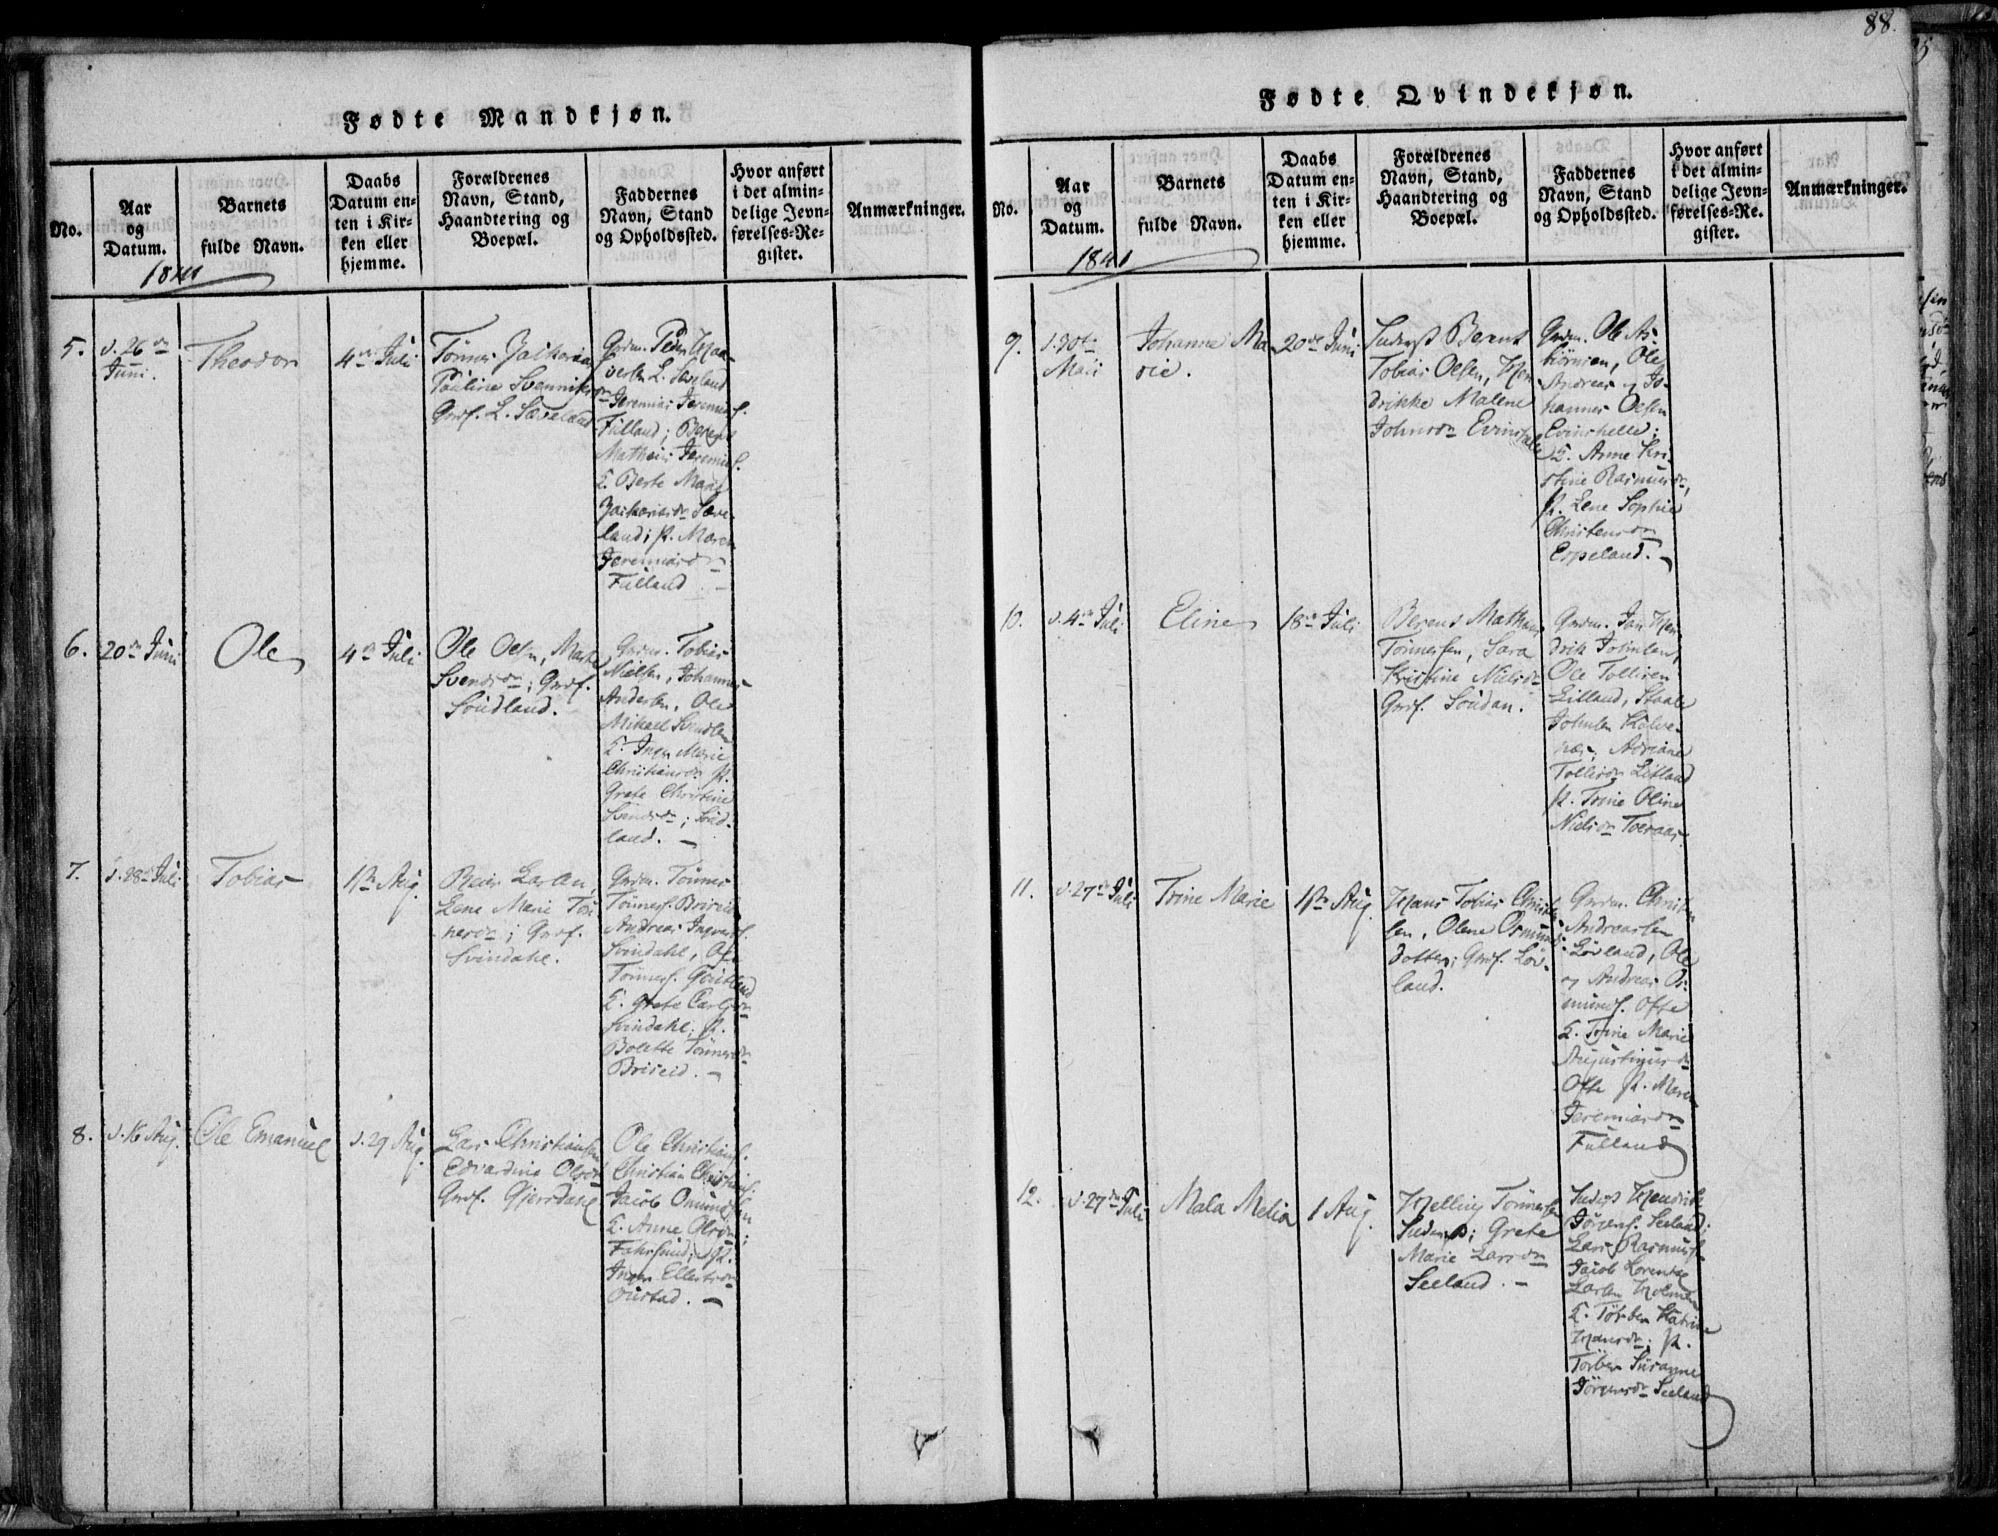 88.
Fødte Mandkjøn.
No.
Aar
og
Datum.
Barnets
fulde Navn.
Daabs
Datum en-
ten i Kir-
ken eller
hjemme.
Forældrenes
Navn, Stand,
Haandtering og
Boepæl.
Faddernes
Navn, Stand
og Opholdssted.
Hvor anført
i det almin-
delige Jevn-
førelses-Re-
gister.
Anmærkninger.
1841
5.
d. 26de
Juni.
Theodor
4de Juli
Tönnes Zacharia
Pauline Svennings
Grdf. L. Sæveland
Grdm.
L. Sæveland
Jeremias Jeremias.
Fulland; Berent
Mathias Jeremias.
L. Berte Marie
Zachariasdr Sæve-
land; P. Maren
Jeremiasdr
Fulland. -
6.
20de Juni
Ole
4de Juli
Ole Olsen, Marte
Svendsdr; Grdf.
Söudland.
Grdm. Tobias
Nielsen, Johannes
Andersen, Ole
Mikael Svendsen
L. Inger Marie
Christiansdr P.
Grete Christine
Svendsdr; Söud-
land. -
7.
d. 28de Juli
Tobias
1ste Aug.
Reier Larsen,
Lene Marie Tön-
nesdr; Grdf.
Svindahl.
Grdm. Tönnes
Tönnes. Briseid
Andreas Ingvars.
Svindahl, Ole
Tönnes.
L. Grete Carlsdr
Svindahl; P.
Bolette Tönnesdr
Briseid. -
8.
d. 16 Aug.
Ole Emanuel
d. 29 Aug.
Lars Christiansen
Edvardine Olsdr
Grdf. Gjersdahl
Ole Christians.
Christian Christians.
Jacob Omundsen
L. Anne Olsdr;
Farsund; P.
Inger Ellertsdr
Oustad. -
Fødte Qvindekjøn.
No.
Aar
og
Datum.
Barnets
fulde Navn.
Daabs
Datum en-
ten i Kir-
ken eller
hjemme.
Forældrenes
Navn, Stand,
Haandtering og
Boepæl.
Faddernes
Navn, Stand
og Opholdssted.
Hvor anført
i det almin-
delige Jevn-
førelses-Re-
gister.
Anmærkninger.
1841
9.
d. 30te
Mai
Johanne Ma-
rie.
20de Juni
Inderst Berent
Tobias Olsen, Hen-
drikke Malene
Johnsdr
Grdm. Ole As-
björnsen, Ole
Andreas og Jo-
hannes Olsen
Evinshelle;
L. Anne Kri-
stine Rasmusdr,
P. Lene Sophie
Christensdr
Espeland. -
10.
d. 4de Juli
Eline
18de Juli
Berent Mathias
Tönnessen, Sara
Kristine Nielsdr
Grdf. Söudan.
Grdm. Jan Hen-
drik Johnsen,
Ole Tollisen
Litland, Staale
Johnsen
Adriane
Tollisdr Litland
P. Trine Oline
Nielsdr
11.
d. 27de Juli
Trine Marie
1ste Aug.
Hans Tobias Christen-
sen, Olene Osmunds-
datter; Grdf. Löv-
land.
Grdm. Christen
Andreassen
Lövland, Ole
og Andreas Os-
munds. Ofte
L. Trine Marie
Augustinusdr
Ofte P. Maren
Jeremiasdr
Fulland
12.
d. 27de Juli
Mala Melia
1 Aug.
Helling Tönnessen
Inderst; Grete
Marie Larsdr
Seeland. -
Inderst Hendrik
Jörgens. Seeland;
Lars Rasmus.
Jacob Lorentz
Larsen Holmen
L. Torber Katrine
Hansdr; P.
Torber Susanne
Jörgensdr Seeland